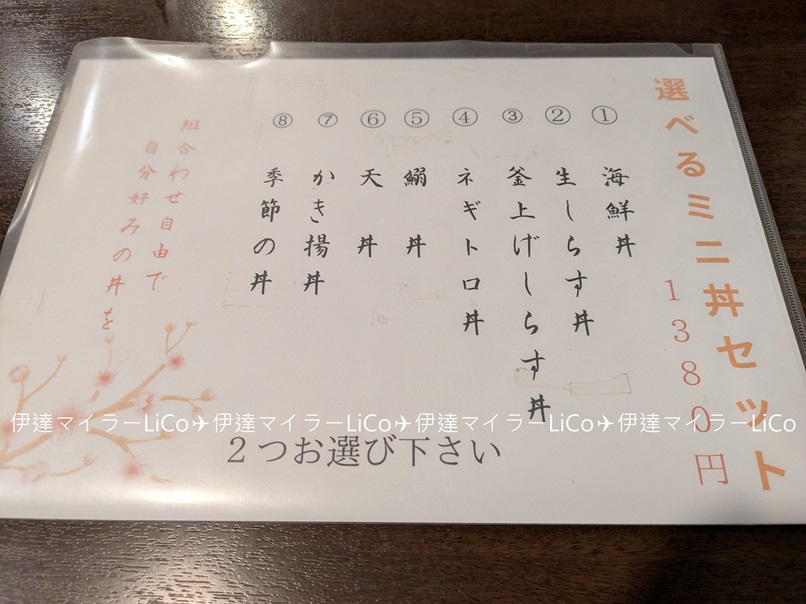 選べるミニ丼セット
1380円
① 海鮮丼
② 生しらす丼
③ 釜上げしらす丼
④ ネギトロ丼
⑤ 鰯丼
⑥ 天丼
⑦ かき揚丼
⑧ 季節の丼
組合わせ自由で
自分好みの丼を
2つお選び下さい
伊達マイラーLiCo✈伊達マイラーLiCo✈伊達マイラーLiCo✈伊達マイラーLiCo